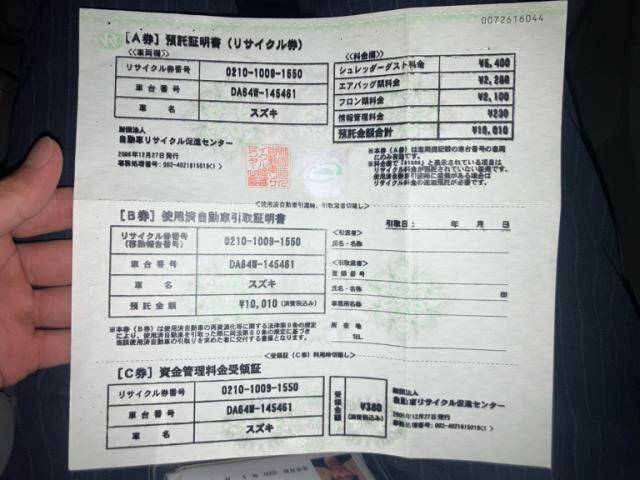 0072616044
[A券] 預託証明書 (リサイクル券)
<車両欄>
リサイクル券番号 0210-1009-1550
車台番号 DA64W-145461
車名 スズキ
<料金欄>
シュレッダーダスト料金 ¥5,400
エアバッグ類料金 ¥2,280
フロン類料金 ¥2,100
情報管理料金 ¥230
預託金額合計 ¥10,010
財団法人
自動車リサイクル促進センター
2006年12月27日発行
※本券(A券)は車両欄記載の車台番号の車両
にのみ有効です。
リサイクル料金が預託されていない装備です。
使用済自動車引渡時に装備がある場合は
リサイクル料金の追加預託が必要です。
<使用済自動車引渡時、引取業者切離し>
[B券] 使用済自動車引取証明書
引取日: 年 月 日
リサイクル券番号
(移動報告番号) 0210-1009-1550
車台番号 DA64W-145461
車名 スズキ
預託金額 ¥10,010 (消費税込み)
<引渡者>
氏名・名称
<引取業者>
登録番号
氏名・名称 印
事業所名称
所在地
TEL.
※本券(B券)は使用済自動車の再資源化等に関する法律第9条の規定
により、使用済自動車を引取った際に同法第80条の規定に基づき
当該使用済自動車の引取りを求めた者に交付する書面となります。
<受領証(C券)利用時切離し>
[C券] 資金管理料金受領証
リサイクル券番号 0210-1009-1550
車台番号 DA64W-145461
車名 スズキ
受領金額 ¥380
(消費税込み)
財団法人
自動車リサイクル促進センター
2006年12月27日発行